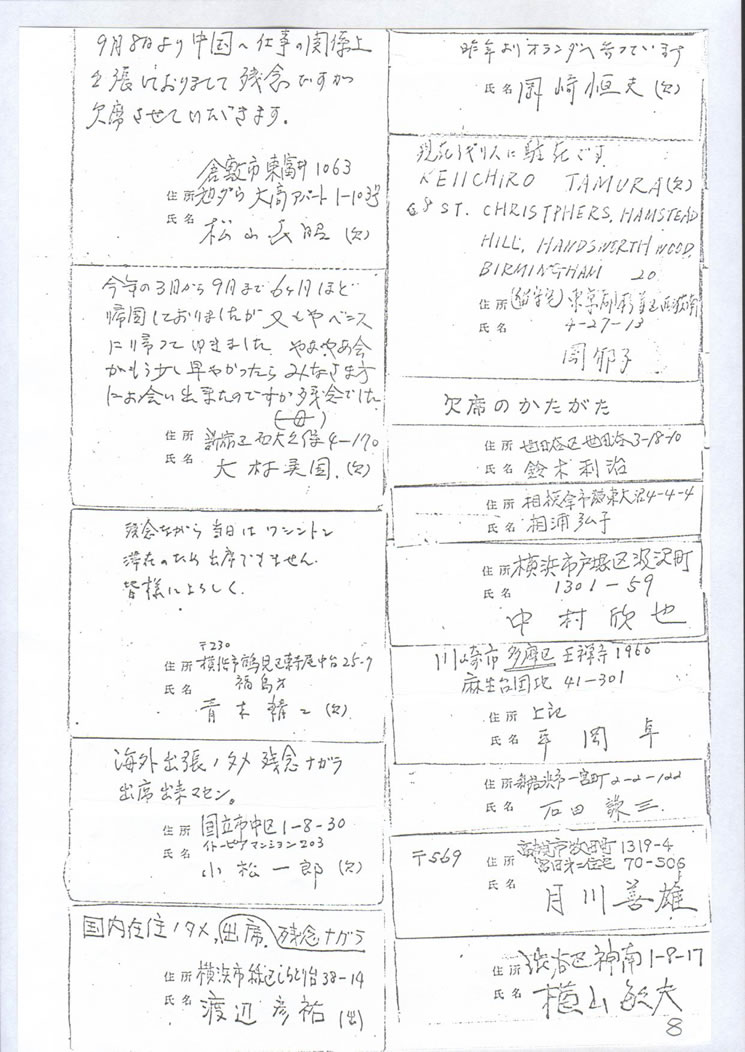 9月8日より中国へ仕事の関係上
出張しておりまして残念ですが
欠席させていただきます。
倉敷市東富井1063
住所 大高アパート1-103号
氏名
松山 (欠)
今年の3月から9月まで6ヶ月ほど
帰国しておりましたが又もやベニス
に帰っでゆきました やあやあ会
がもう少し早やかったらみなさま方
にお会い出来たのですが残念でした
住所 新宿区西大久保4-170
氏名
大村 (欠)
残念ながら当日はワシントン
滞在のため出席できません。
皆様によろしく。
〒230
住所 横浜市鶴見区東寺尾中台25-9
氏名 福島方
青木 (欠)
海外出張ノタメ残念ナガラ
出席出来マセン。
住所 国立市中区1-8-30
氏名 イトーピアマンション203
小松一郎 (欠)
国内在住ノタメ、出席、残念ナガラ
住所 横浜市緑区しらとり台38-14
氏名 渡辺彦祐 (出)
昨年よりオランダへ行っています
氏名 岡崎恒夫 (欠)
現在イギリスに駐在です
KEIICHIRO TAMURA (欠)
68 ST. CHRISTPHERS, HAMSTEAD
HILL, HANDSWORTH WOOD,
BIRMINGHAM 20
住所 (留守宅) 東京都杉並区
氏名 4-27-13
岡郁子
欠席のかたがた
住所 世田谷区世田谷3-18-10
氏名 鈴木利治
住所 相模原市東大沼4-4-4
氏名 相浦弘子
住所 横浜市戸塚区汲沢町
氏名 1301-59
中村欣也
川崎市多摩区王禅寺1960
麻生台団地 41-301
住所 上記
氏名 平岡卓
住所 一宮町2-2-122
氏名 石田 三
〒569 住所 高槻市牧田町1319-4
富田第二住宅 70-506
氏名 月川善雄
住所 渋谷区神南1-8-17
氏名 横山敏夫
8